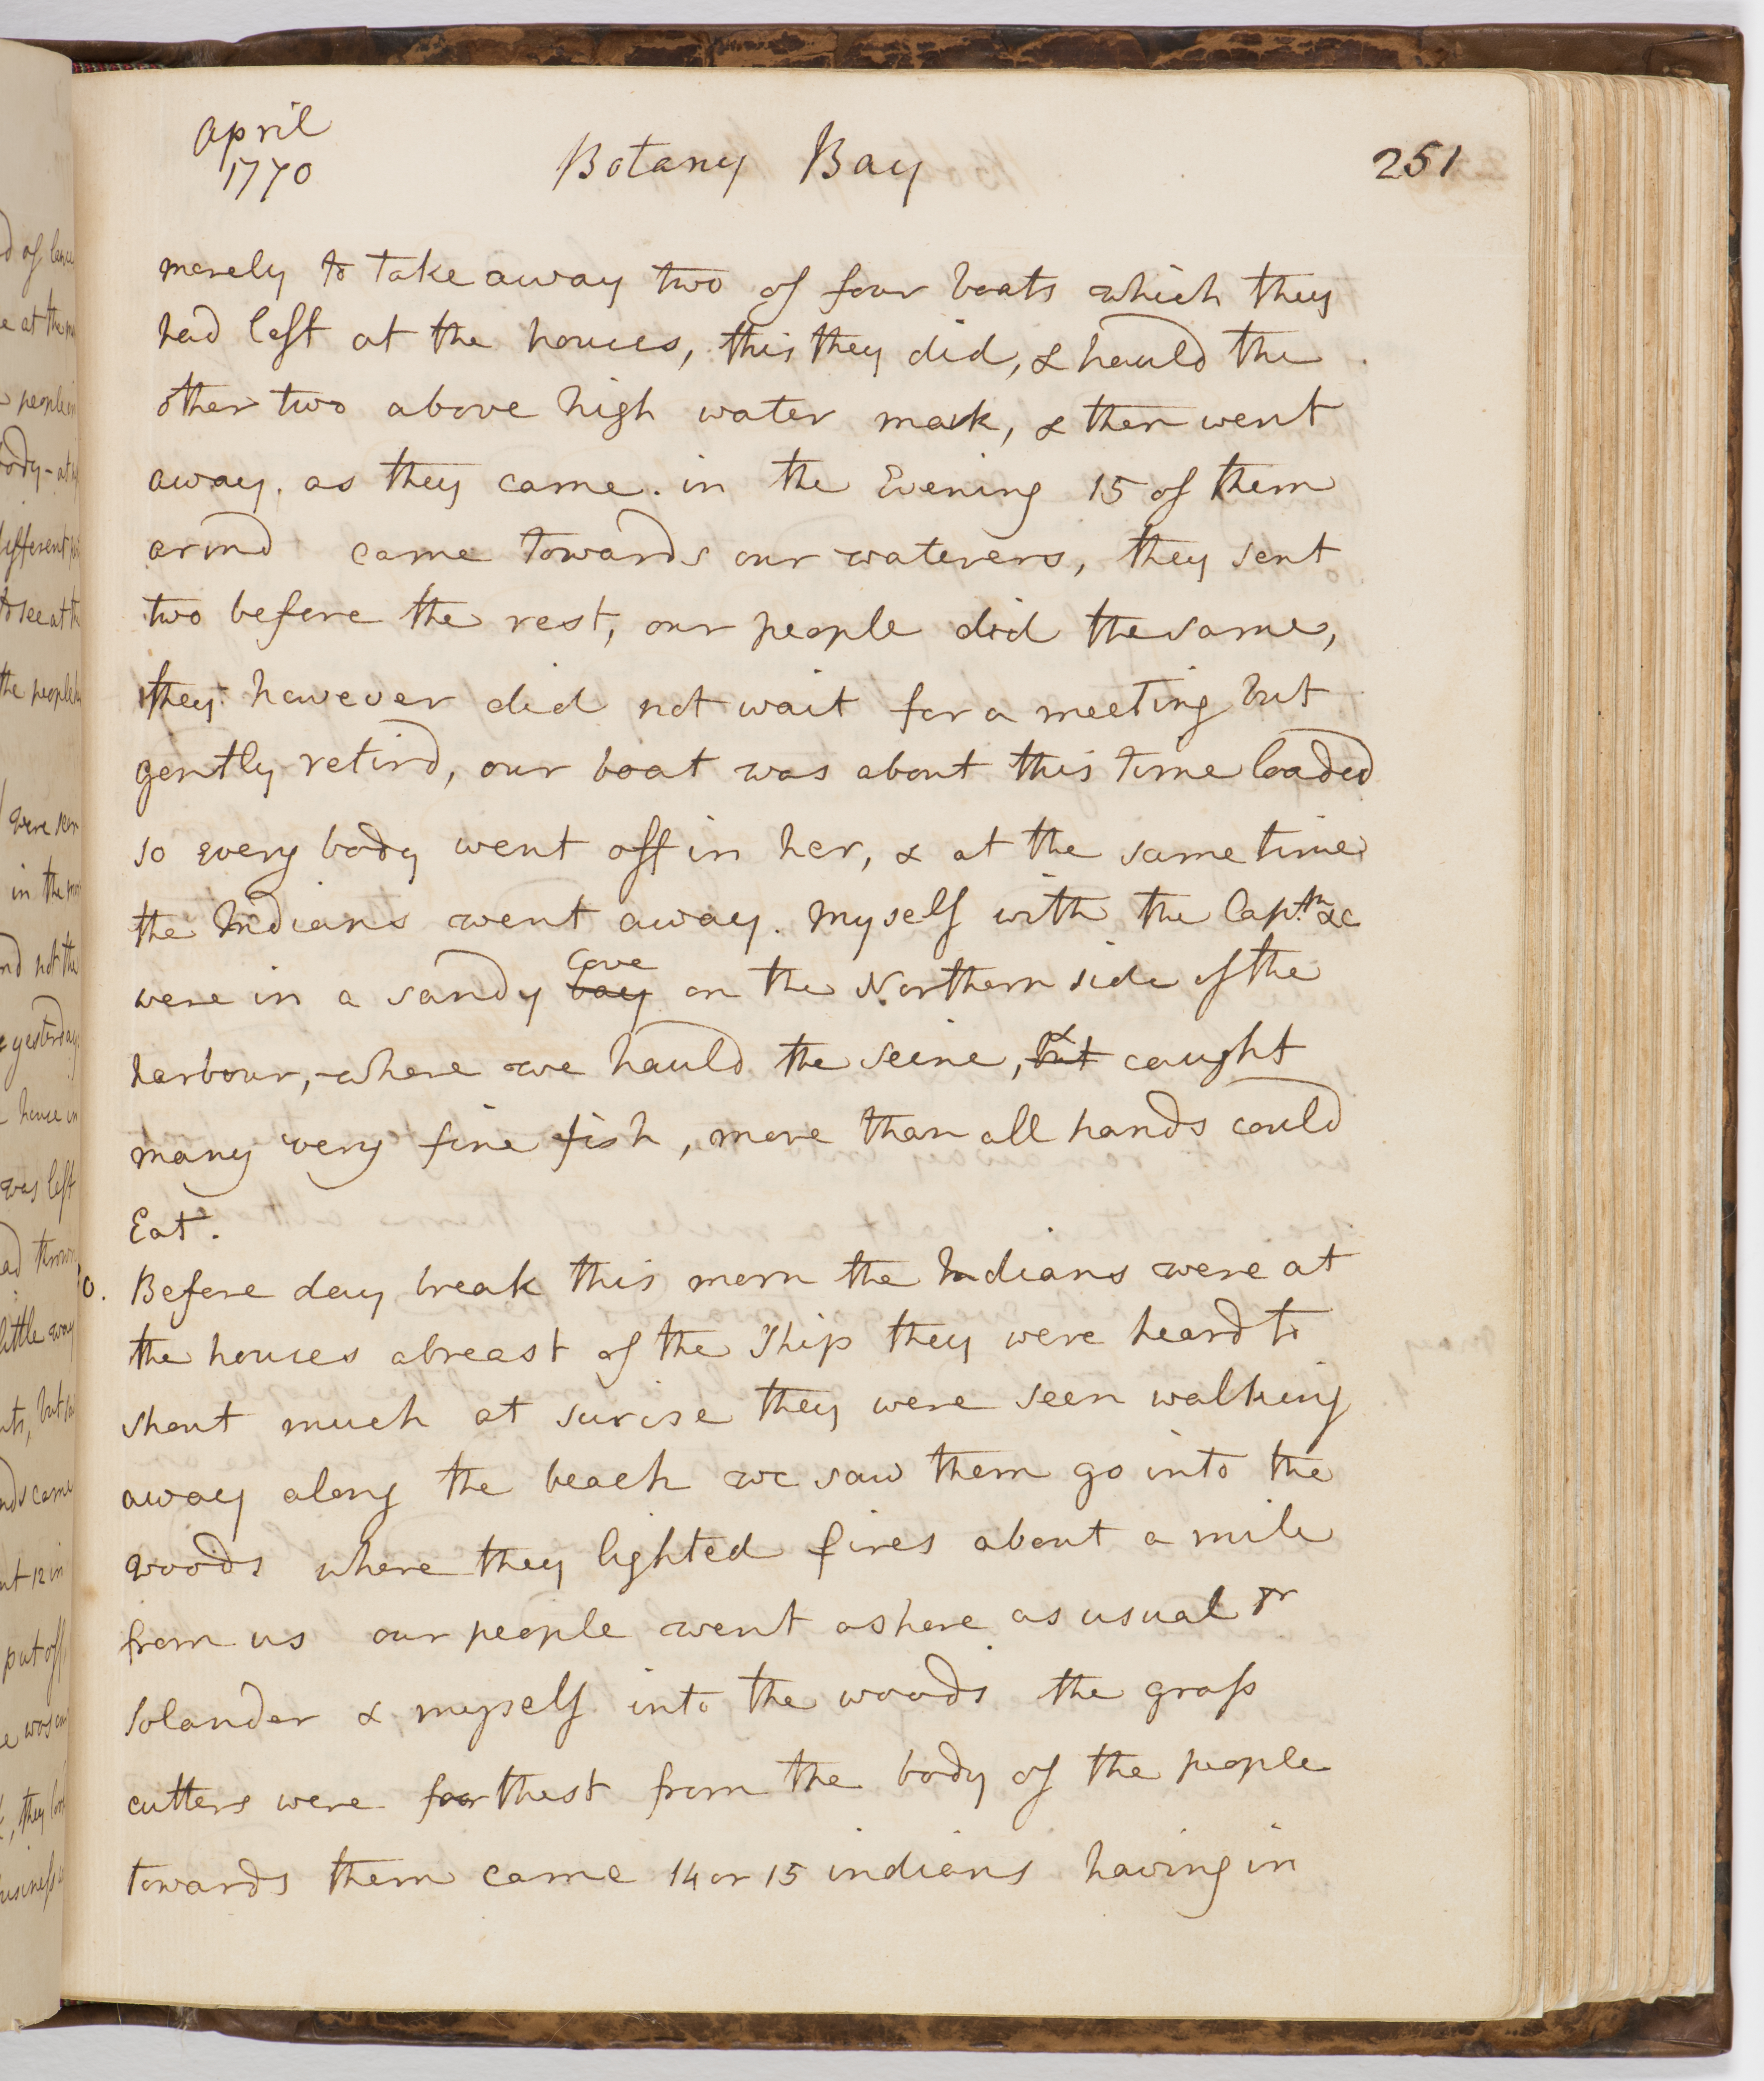 April
1770
Botany Bay
251
merely to take away two of four boats which they
had left at the houses, this they did, & hauld the
other two above high water mark, & then went
away. as they came. in the Evening 15 of them
armd came towards our waterers, they sent
two before the rest, our people did the same,
they however did not wait for a meeting but
gently retird, our boat was about this time loaded
so every body went off in her, & at the same time
the Indians went away. Myself with the Captn &c
were in a sandy bay cove on the Northern side of the
harbour, where we hauld the seine, but & caught
many very fine fish, more than all hands could
Eat.
0. Before day break this morn the Indians were at
the houses abreast of the Ship they were heard to
shout much at surise they were seen walking
away along the beach we saw them go into the
woods where they lighted fires about a mile
from us our people went ashore as usual Dr
Solander & myself into the woods the grass
cutters were farthest from the body of the people
towards them came 14 or 15 indians having in